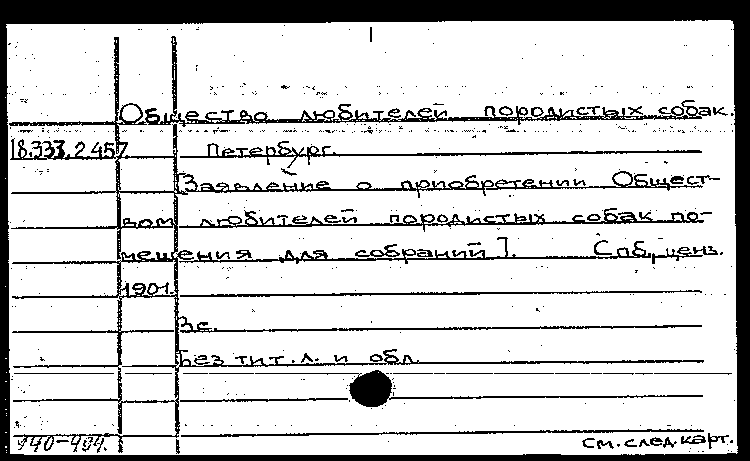 Общество любителей породистых собак.
18.333.2.457. Петербург.
[Заявление о приобретении Общест-
вом любителей породистых собак по-
мещения для собраний]. Спб., ценз.
1901.
3 с.
Без тит. л. и обл.
см. след. карт.